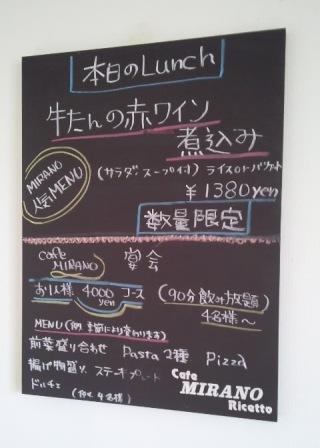 本日のLunch
牛たんの赤ワイン
煮込み
MIRANO
人気MENU
(サラダ・スープ付) ライスorバケット
¥1380yen
数量限定
cafe
MIRANO
宴会
お1人様 4000yen コース
(90分飲み放題)
4名様～
MENU (例 季節により変わります)
前菜盛り合わせ Pasta 2種 Pizza
揚げ物盛り、ステーキプレート
ドルチェ
Cafe
MIRANO
Ricetto